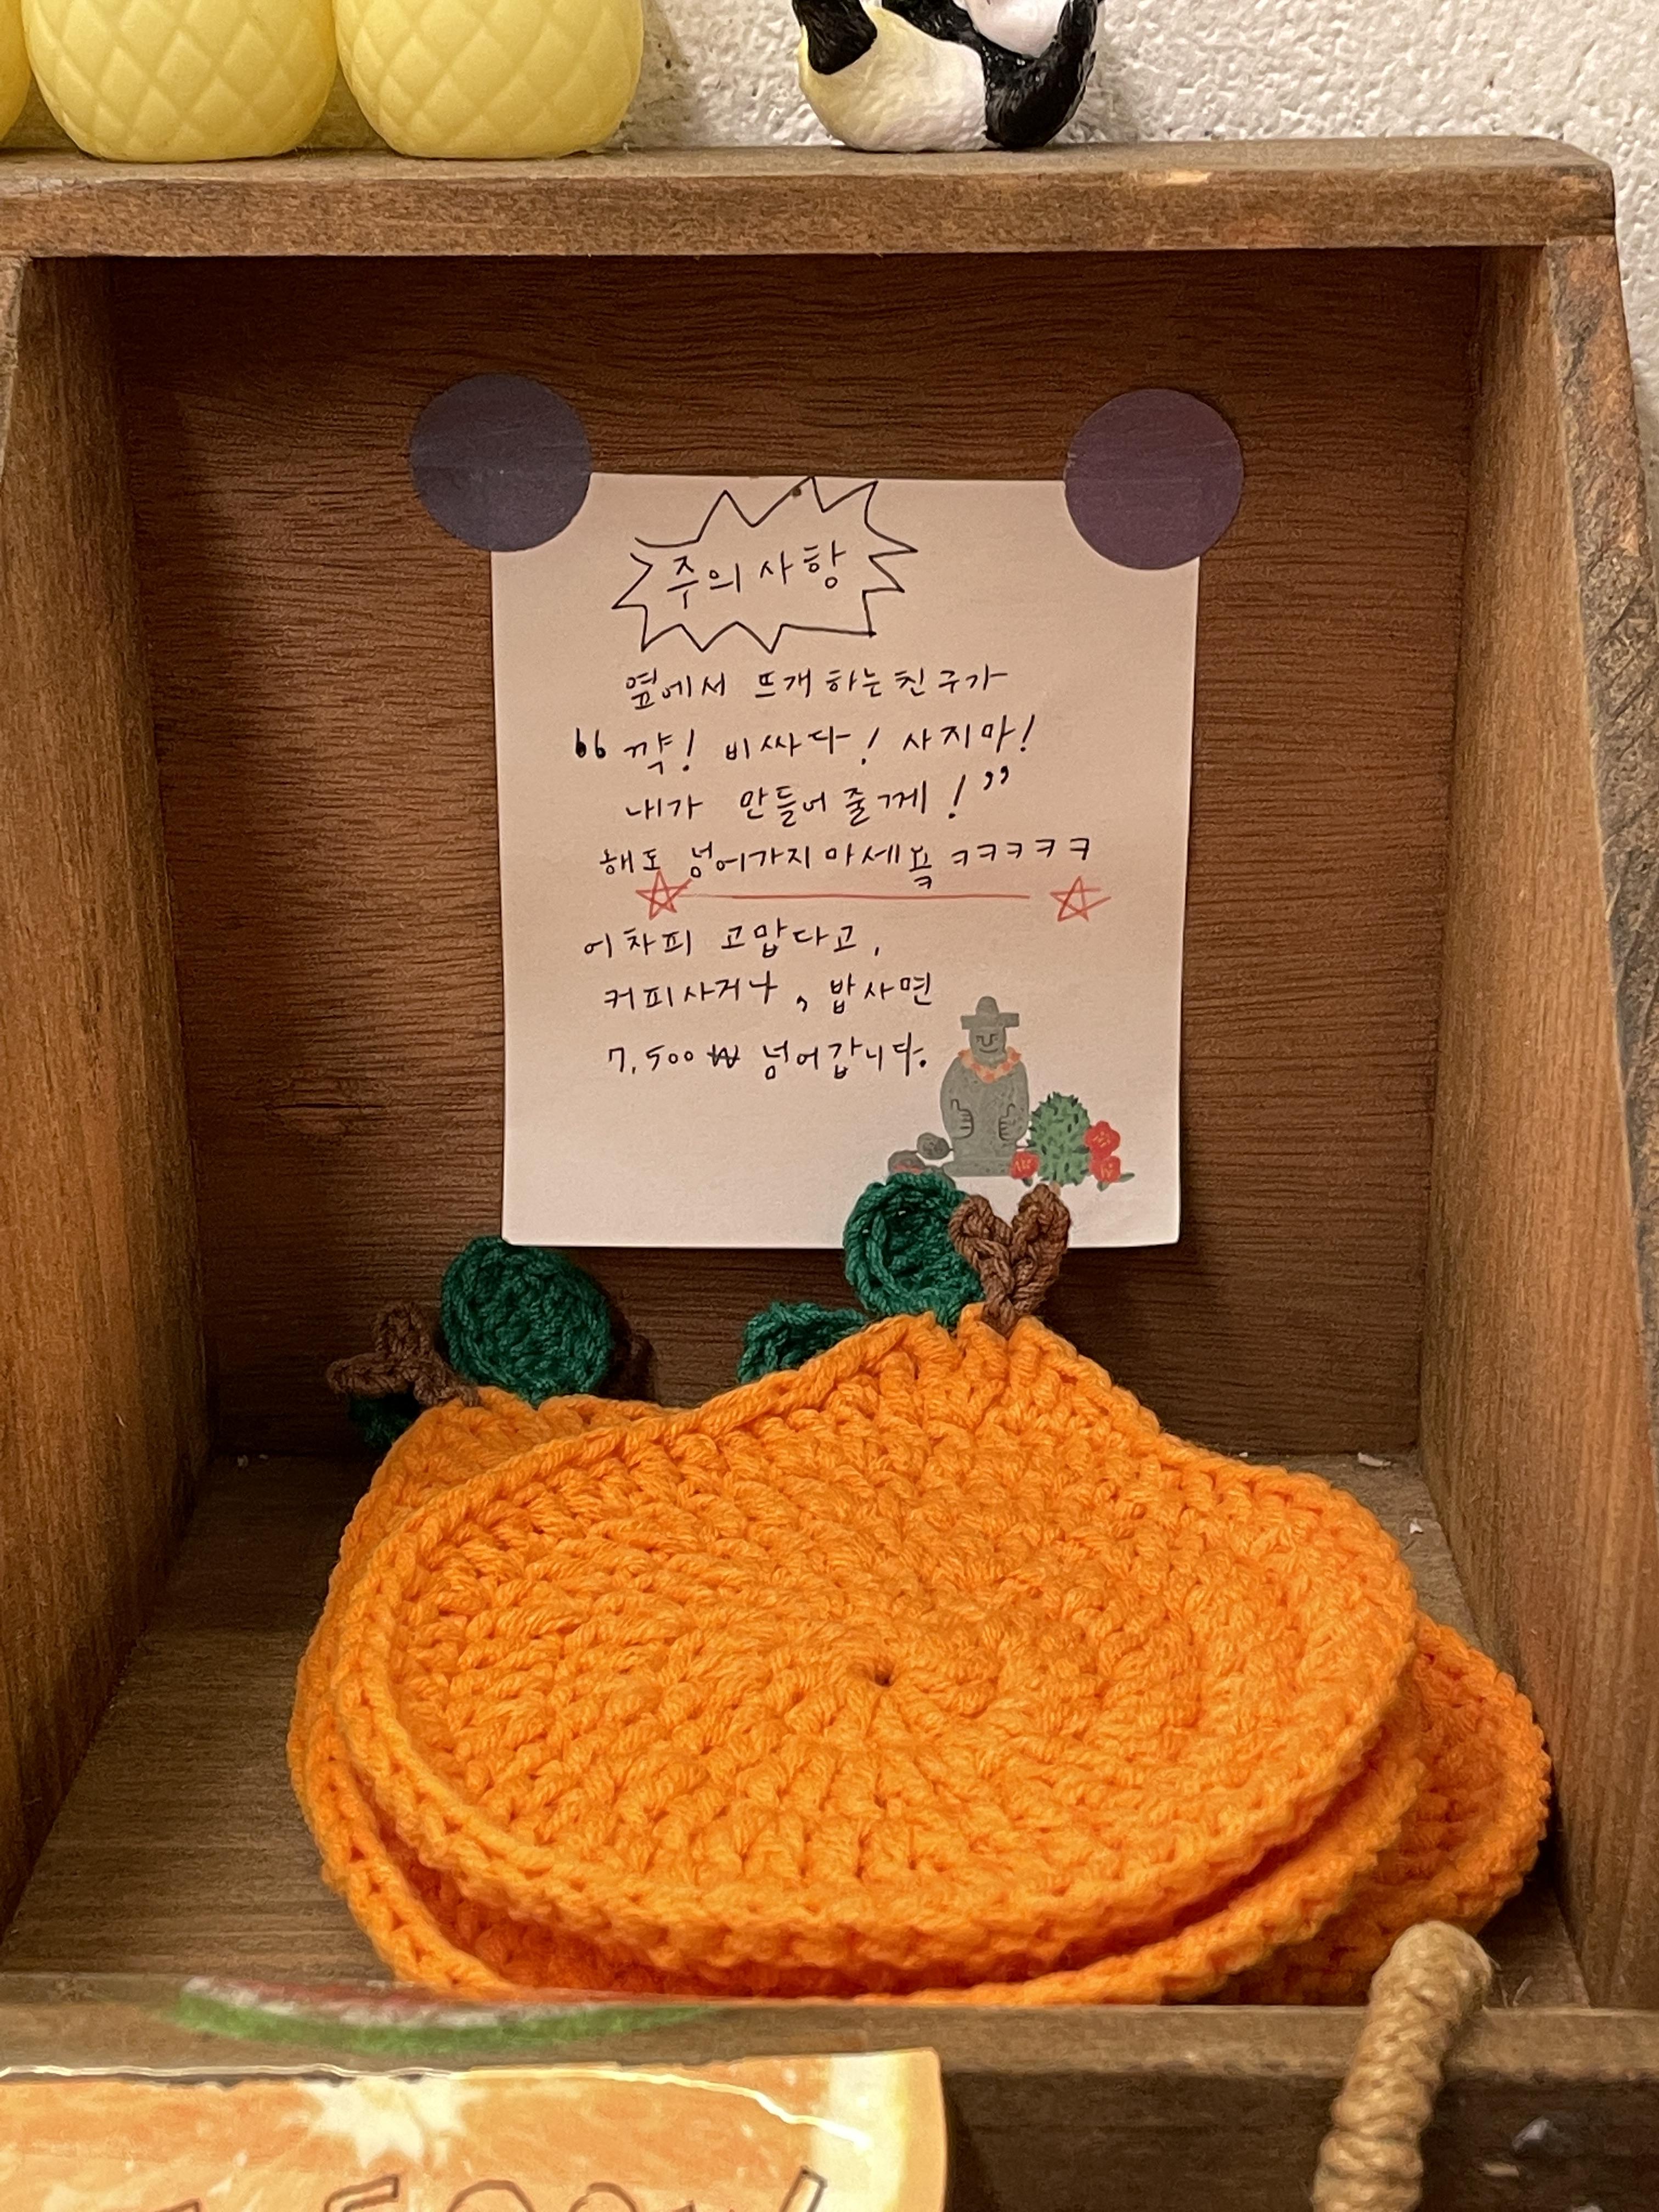 주의사항
옆에서 뜨개하는친구가
"꺅! 비싸다! 사지마!
내가 만들어줄께!"
해도 넘어가지마세욬 ㅋㅋㅋㅋㅋ
어차피 고맙다고,
커피사거나, 밥사면
7,500₩ 넘어갑니다.